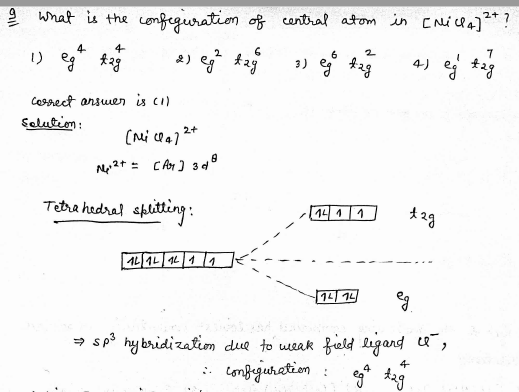 Q What is the configuration of central atom in [NiCl4]²⁺?
1) eg⁴ t2g⁴ 2) eg² t2g⁶ 3) eg⁶ t2g² 4) eg¹ t2g⁷
correct answer is (1)
Solution:
[NiCl4]²⁺
Ni²⁺ = [Ar] 3d⁸
Tetrahedral splitting:
1L 1 1 t2g
1L 1L 1L 1 1
1L 1L eg
⇒ sp³ hybridization due to weak field ligand Cl⁻,
∴ configuration : eg⁴ t2g⁴